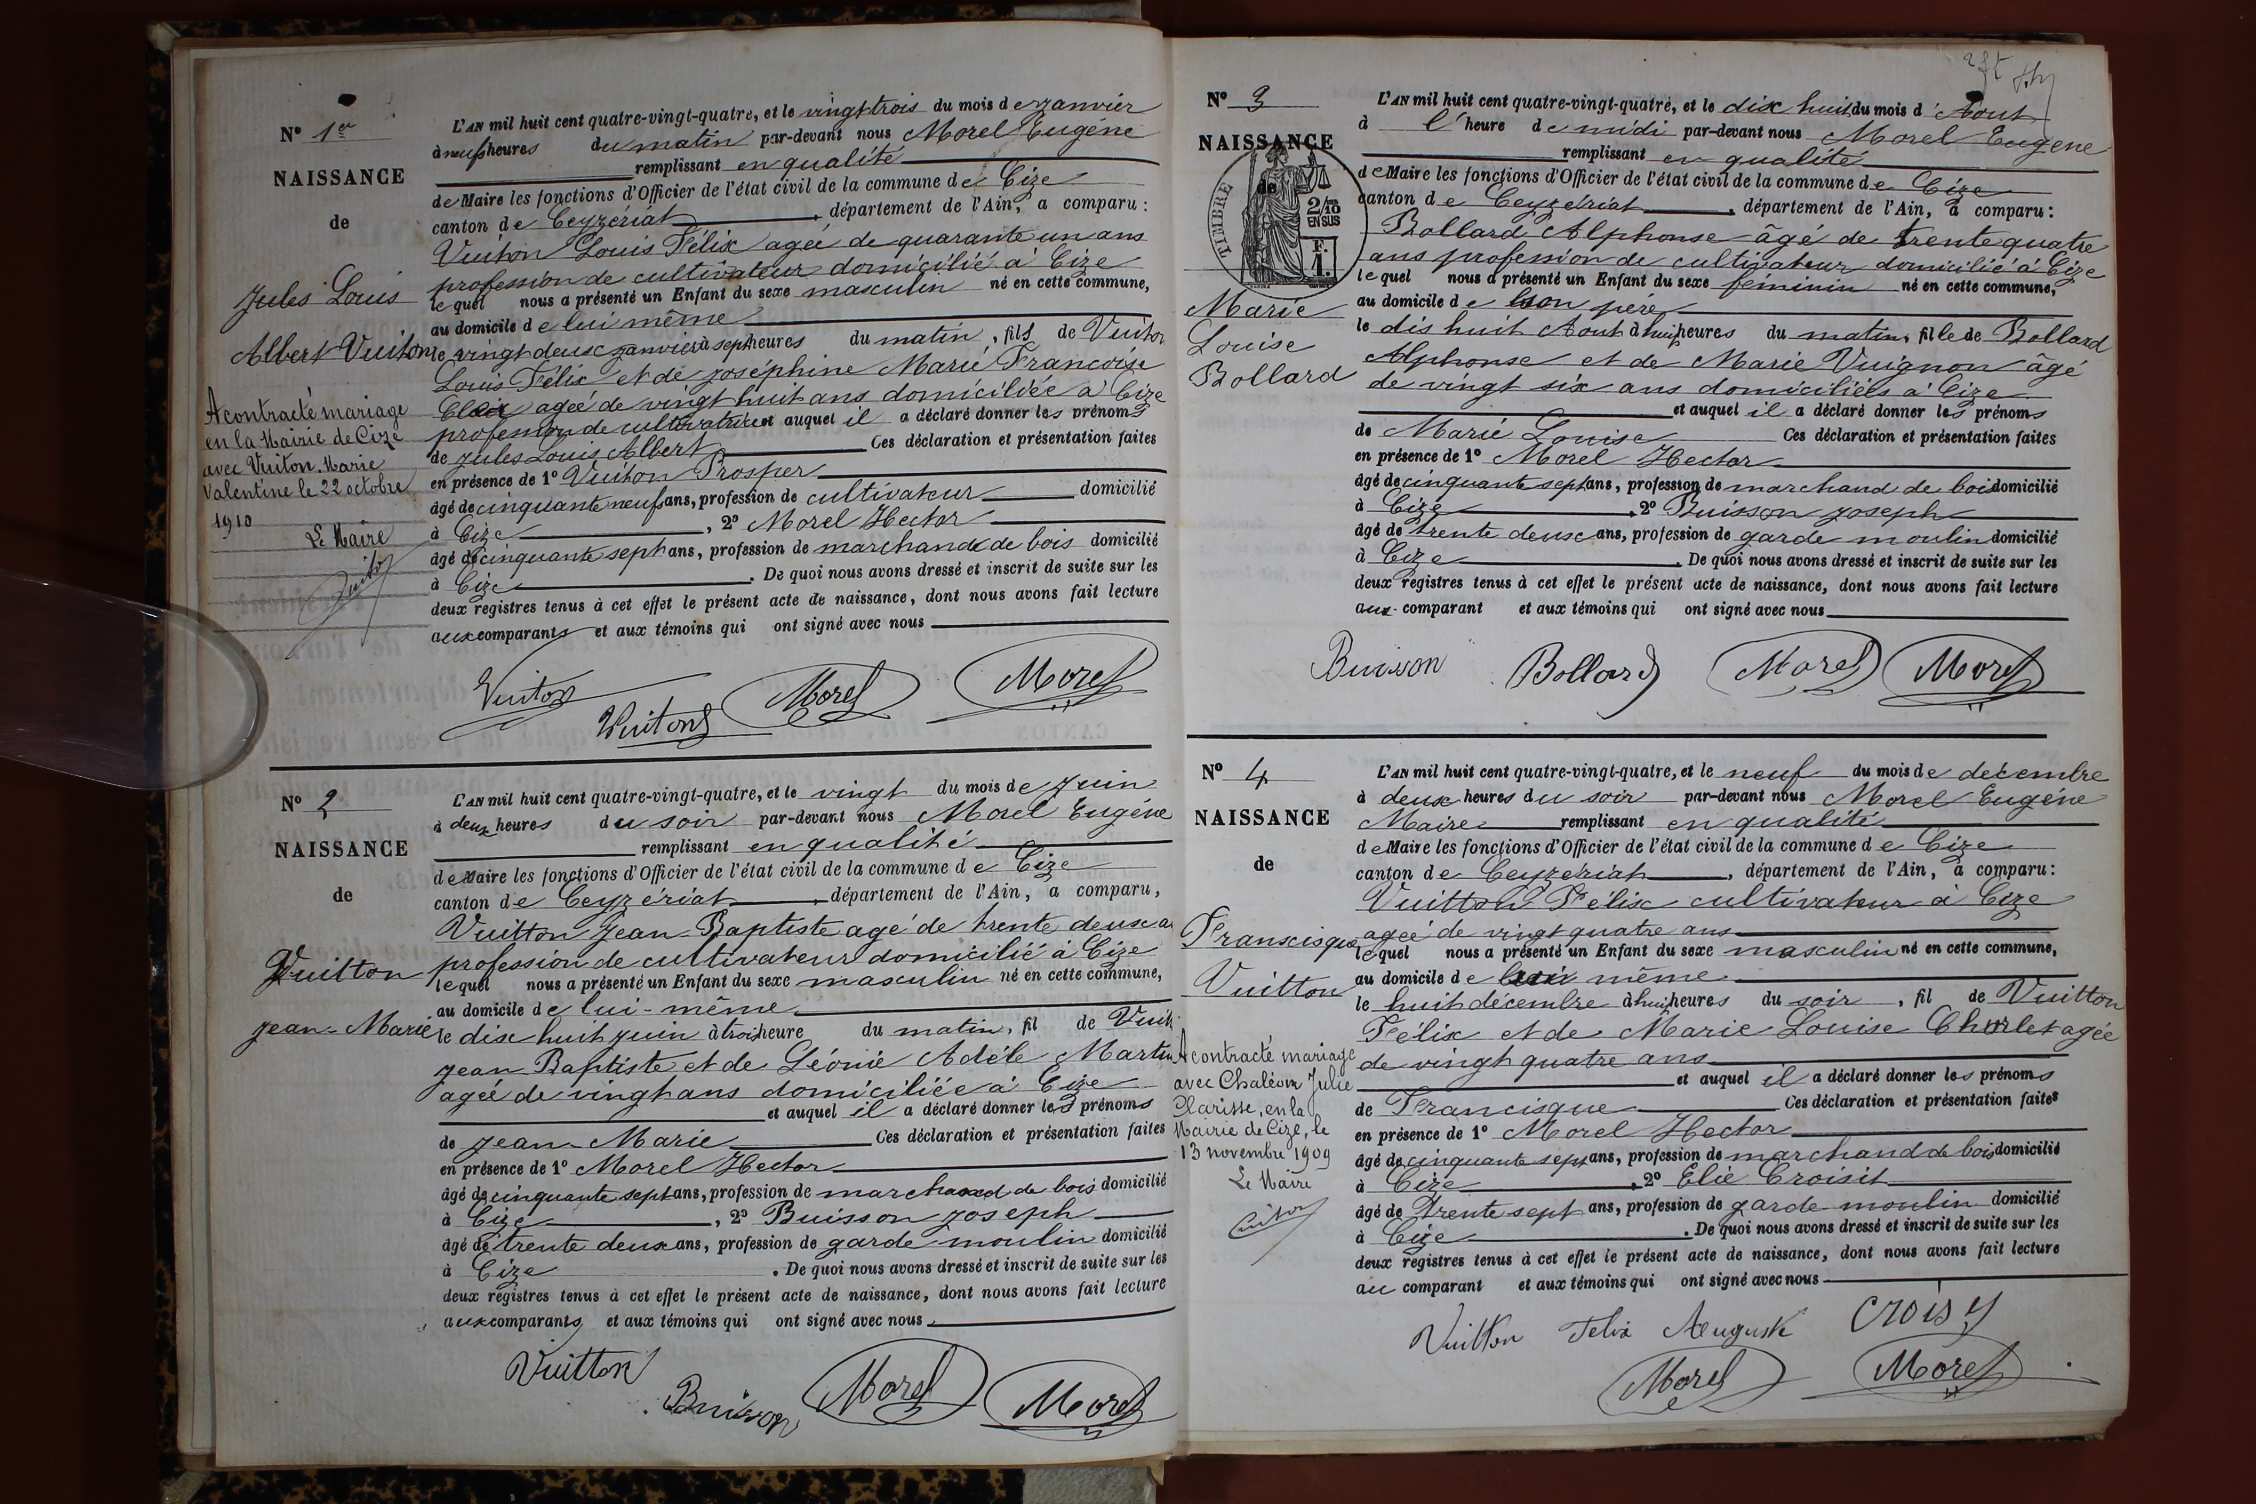 N° 1er
NAISSANCE
de
Jules Louis
Albert Vuiton
A contracté mariage
en la Mairie de Cize
avec Vuiton Marie
Valentine le 22 octobre
1910
Le Maire
L'AN mil huit cent quatre-vingt-quatre, et le vingt trois du mois de janvier
à neuf heures du matin par-devant nous Morel Eugène
remplissant en qualité
de Maire les fonctions d'Officier de l'état civil de la commune de Cize
canton de Ceyzériat, département de l'Ain, a comparu :
Vuiton Louis Félix ageé de quarante un ans
profession de cultivateur domicilié à Cize
lequel nous a présenté un Enfant du sexe masculin né en cette commune,
au domicile de lui même
le vingt deux janvier à sept heures du matin, fils de Vuiton
Louis Félix et de Joséphine Marie Francoise
agéé de vingt huit ans domiciliée à Cize
profession de cultivatrice et auquel il a déclaré donner les prénoms
de Jules Louis Albert Ces déclaration et présentation faites
en présence de 1° Vuiton Prosper
âgé de cinquante neuf ans, profession de cultivateur domicilié
à Cize, 2° Morel Hector
âgé de cinquante sept ans, profession de marchand de bois domicilié
à Cize. De quoi nous avons dressé et inscrit de suite sur les
deux registres tenus à cet effet le présent acte de naissance, dont nous avons fait lecture
aux comparants et aux témoins qui ont signé avec nous
Vuiton
Vuiton Morel Morel
N° 2
NAISSANCE
de
Vuitton
Jean-Marie
L'AN mil huit cent quatre-vingt-quatre, et le vingt du mois de Juin
à deux heures du soir par-devant nous Morel Eugène
remplissant en qualité
de Maire les fonctions d'Officier de l'état civil de la commune de Cize
canton de Ceyzériat, département de l'Ain, a comparu,
Vuitton Jean-Baptiste agé de trente deux a
profession de cultivateur domicilié à Cize
lequel nous a présenté un Enfant du sexe masculin né en cette commune,
au domicile de lui-même
le dix huit juin à trois heure du matin, fil de Vuit
Jean Baptiste et de Léonie Adéle Martin
agéé de vingt ans domiciliée à Cize
et auquel il a déclaré donner les prénoms
de Jean-Marie Ces déclaration et présentation faites
en présence de 1° Morel Hector
âgé de cinquante sept ans, profession de marchand de bois domicilié
à Cize, 2° Buisson Joseph
âgé de trente deux ans, profession de garde moulin domicilié
à Cize. De quoi nous avons dressé et inscrit de suite sur les
deux registres tenus à cet effet le présent acte de naissance, dont nous avons fait lecture
aux comparants et aux témoins qui ont signé avec nous
Vuitton
Buisson Morel Morel
N° 3
NAISSANCE
de
TIMBRE
2/10
EN SUS
F.
1.
Marie
Louise
Bollard
L'AN mil huit cent quatre-vingt-quatre, et le dix huit du mois d'Aout
à l'heure de midi par-devant nous Morel Eugène
remplissant en qualité
de Maire les fonctions d'Officier de l'état civil de la commune de Cize
canton de Ceyzériat, département de l'Ain, a comparu :
Bollard Alphonse âgé de trente quatre
ans profession de cultivateur domicilié à Cize
lequel nous a présenté un Enfant du sexe féminin né en cette commune,
au domicile de son père
le dis huit Aout à huit heures du matin, fille de Bollard
Alphonse et de Marie Vuignon âgé
de vingt six ans domiciliées à Cize
et auquel il a déclaré donner les prénoms
de Marie Louise Ces déclaration et présentation faites
en présence de 1° Morel Hector
âgé de cinquante sept ans, profession de marchand de bois domicilié
à Cize, 2° Buisson Joseph
âgé de trente deux ans, profession de garde moulin domicilié
à Cize. De quoi nous avons dressé et inscrit de suite sur les
deux registres tenus à cet effet le présent acte de naissance, dont nous avons fait lecture
aux comparant et aux témoins qui ont signé avec nous
Buisson Bollard Morel Morel
N° 4
NAISSANCE
de
Franscisque
Vuitton
A contracté mariage
avec Chaléon Julie
Clarisse, en la
Mairie de Cize, le
13 novembre 1909
Le Maire
L'AN mil huit cent quatre-vingt-quatre, et le neuf du mois de décembre
à deux heures du soir par-devant nous Morel Eugéne
Maire remplissant en qualité
de Maire les fonctions d'Officier de l'état civil de la commune de Cize
canton de Ceyzériat, département de l'Ain, a comparu :
Vuitton Félix cultivateur à Cize
ageé de vingt quatre ans
lequel nous a présenté un Enfant du sexe masculin né en cette commune,
au domicile de lui même
le huit décembre à huit heures du soir, fil de Vuitton
Félix et de Marie Louise Charlet agée
de vingt quatre ans
et auquel il a déclaré donner les prénoms
de Francisque Ces déclaration et présentation faites
en présence de 1° Morel Hector
âgé de cinquante sept ans, profession de marchand de bois domicilié
à Cize, 2° Elie Croisit
âgé de Trente sept ans, profession de garde-moulin domicilié
à Cize. De quoi nous avons dressé et inscrit de suite sur les
deux registres tenus à cet effet le présent acte de naissance, dont nous avons fait lecture
au comparant et aux témoins qui ont signé avec nous
Vuitton Felix Auguste Croisy
Morel Morel